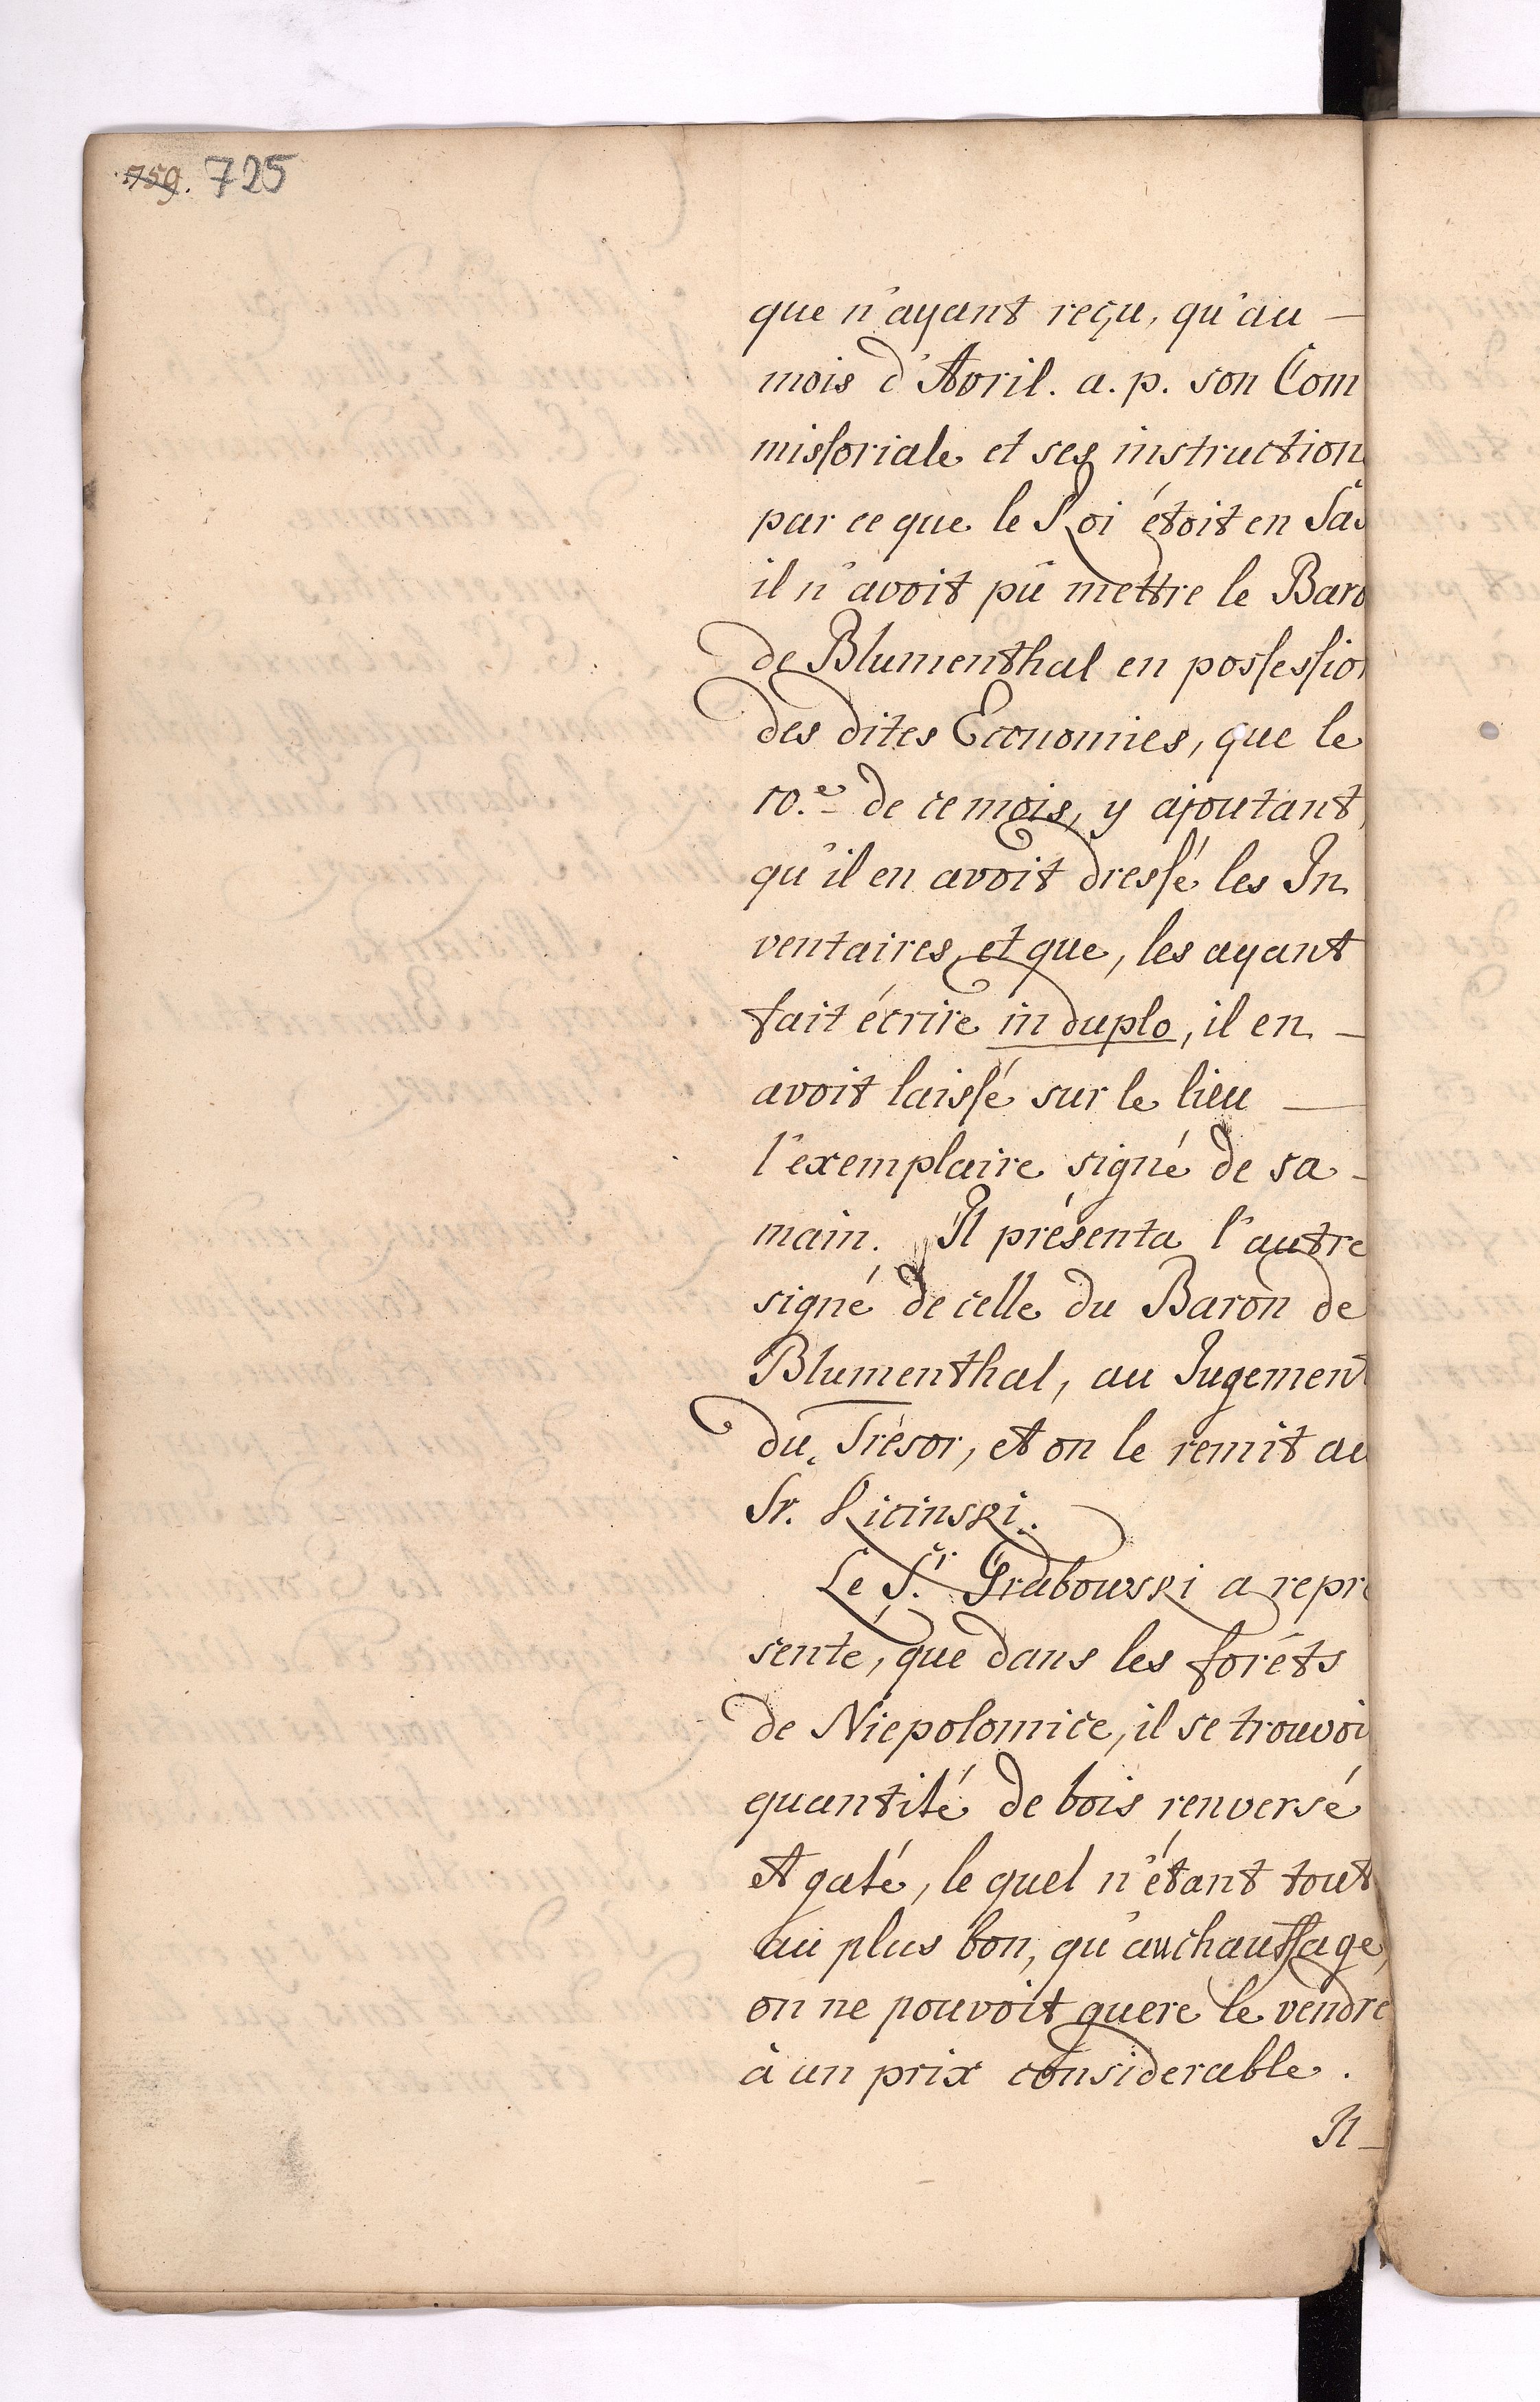 759. 725
que n'ayant reçu, qu'au —
mois d'Avril. a. p. son Com
missoriale et ses instruction
par ce que le Roi étoit en Sax
il n'avoit pû mettre le Baro
de Blumenthal en possessio
des dites Economies, que le
10.e de ce mois, y ajoutant,
qu'il en avoit dressé les In
ventaires, et que, les ayant
fait écrire in duplo, il en —
avoit laissé sur le lieu —
l'exemplaire signé de sa -
main. Il présenta l'autre
signé de celle du Baron de
Blumenthal, au Jugement
du Trésor, et on le remit au
Sr. Licinski.
Le Sr. Grabowski a repré
senté, que dans les forêts
de Niepolomice, il se trouvoi
quantité de bois renversé
et gaté, le quel n'étant tout
au plus bon, qu'au chauffage,
on ne pouvoit guere le vendre
à un prix considerable.
Il —